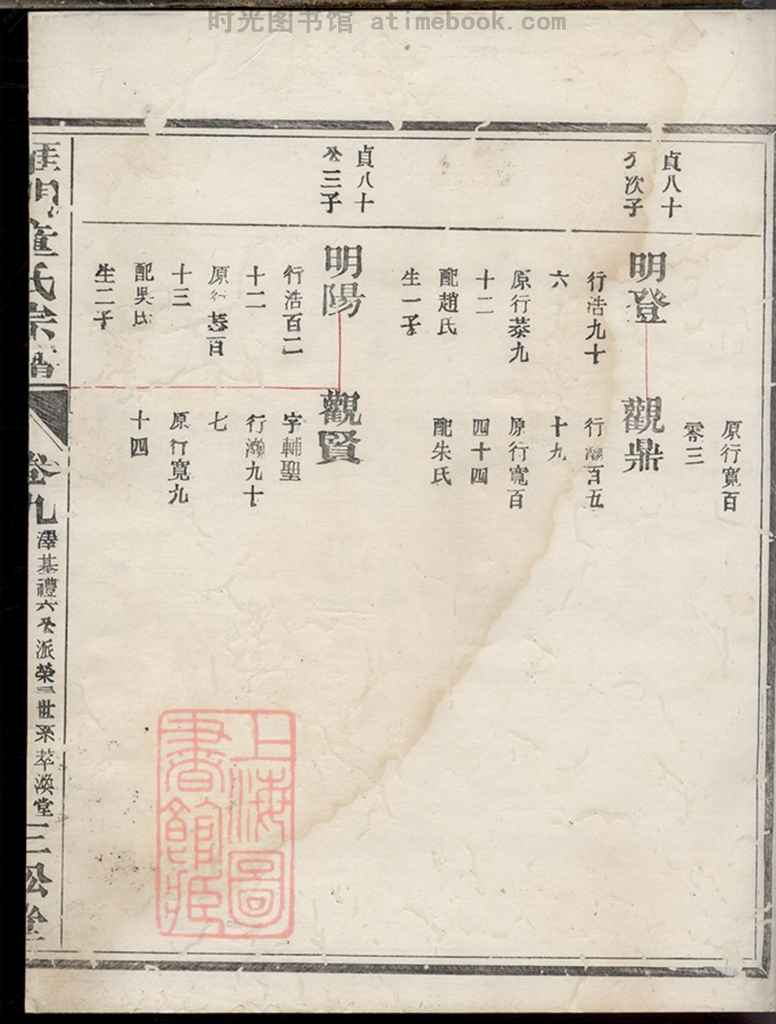 时光图书馆 atimebook.com
原行寬百
零三
貞八十
公次子
明登
行浩九十
六
原行恭九
十二
配趙氏
生一子
觀鼎
行瀚百五
十九
原行寬百
四十四
配朱氏
貞八十
公三子
明陽
行浩百二
十二
原行恭百
十三
配吳氏
生二子
觀賢
字輔聖
行瀚九十
七
原行寬九
十四
董氏宗譜
卷九
基禮六公派榮三世系萃渙堂
三松堂
上海圖書館藏